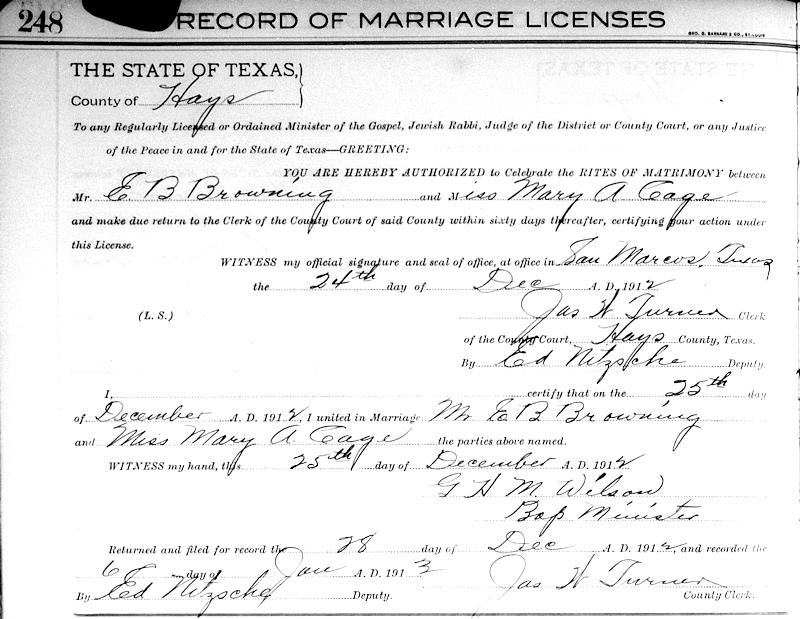 248 RECORD OF MARRIAGE LICENSES
GEO. D. BARNARD & CO., ST. LOUIS
THE STATE OF TEXAS,
County of Hays
To any Regularly Licensed or Ordained Minister of the Gospel, Jewish Rabbi, Judge of the District or County Court, or any Justice
of the Peace in and for the State of Texas—GREETING:
YOU ARE HEREBY AUTHORIZED to Celebrate the RITES OF MATRIMONY between
Mr. E B Browning and Miss Mary A Cage
and make due return to the Clerk of the County Court of said County within sixty days thereafter, certifying your action under
this License.
WITNESS my official signature and seal of office, at office in San Marcos, Texas
the 24th day of Dec A. D. 1912
Jas W. Turner Clerk
(L. S.) of the County Court, Hays County, Texas.
By Ed Nitzsche Deputy.
I, certify that on the 25th day
of December A. D. 1912, I united in Marriage Mr E B Browning
and Miss Mary A. Cage the parties above named.
WITNESS my hand, this 25th day of December A. D. 1912
G H M. Wilson
Bap Minister
Returned and filed for record the 28 day of Dec A. D. 1912, and recorded the
6 day of Jan A. D. 1913 Jas W. Turner
By Ed Nitzsche Deputy. County Clerk.